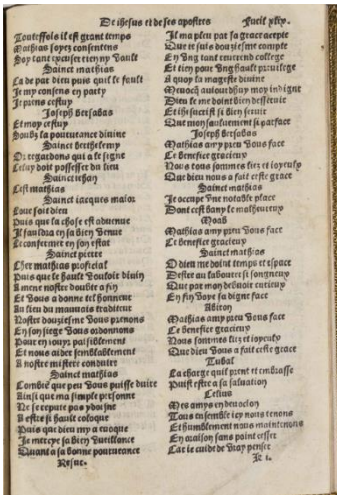 De ihesus et de ses apostres
Fueil xlix.
Toutesfois il est grant temps
Mathias soyez consentens
Soy tant excuser rien ny vault
Sainct mathias
Ca de par dieu puis quil le fault
Je my consens en party
Je prens cestuy
Joseph bersabas
Et moy cestuy
Soubz la pourueance diuine
Sainct berthelemy
Or regardons qui a le signe
Celuy doit posseder du lieu
Sainct iehan
Cest mathias
Sainct iacques maior
Loue soit dieu
Puis que la chose est aduenue
Il fauldra en sa bien venue
Le confermer en son estat
Sainct pierre
Cher mathias
Puis que le hault vouloit
A mene nostre doubte a fin
Et vous a donne tel honneur
Au lieu du mauuais traditeur
Nostre douziesme vous prenons
En son siege vous ordonnons
Pour en iouyr paisiblement
Et nous aider semblablement
A nostre mistere conduire
Sainct mathias
Combie que peu vous puisse duire
Ainsi que ma simple personne
Ne se repute pas ydoine
A estre si hault colloque
Puis que dieu my a euoque
Je mercye sa
Quant a sa bonne pourueance
Resur.
Il ma pleu par sa grace accepte
Que ie suis douziesme compte
En vng tant reuerend college
Et tien pour vng hault priuilege
A quoy la mageste diuine
Menoch auiourdhuy moy indigne
Dieu le me doint bien desseruir
Et ihesucrist si bien seruir
Que mon saulvement si parface
Joseph bersabas
Mathias amy preu vous face
Ce benefice gracieux
Nous tous sommes liez et ioyeulx
Que dieu nous a fait ceste grace
Sainct mathias
Je occupe vne notable place
Dont cest bany le malheureux
Moab
Mathias amy preu vous face
Ce benefice gracieux
Sainct mathias
Dieu me doint temps et espace
Destre au labourer si songneux
Que par mon
En fin voye sa digne face
Abiron
Mathias amy preu vous face
Ce benefice gracieux
Nous sommes liez et ioyeulx
Que dieu vous a fait ceste grace
Tubal
La charge quil prent et embrasse
Puist estre a sa saluation
Celius
Mes amys en deuocion
Tous ensemble icy nous tenons
Et humblement nous maintenons
En oraison sans point cesser
Car ie cuide de vray penser